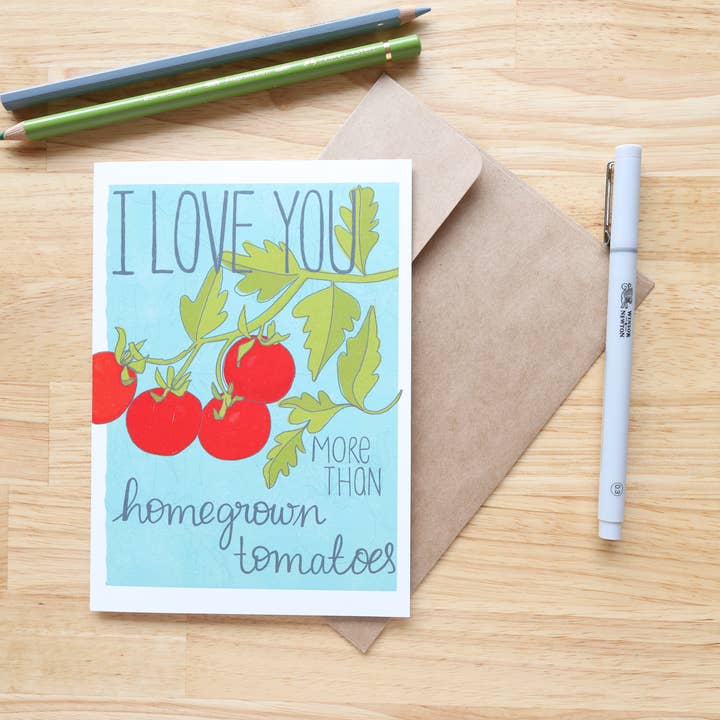 I LOVE YOU
MORE
THAN
homegrown
tomatoes
WINSOR
NEWTON
0.3